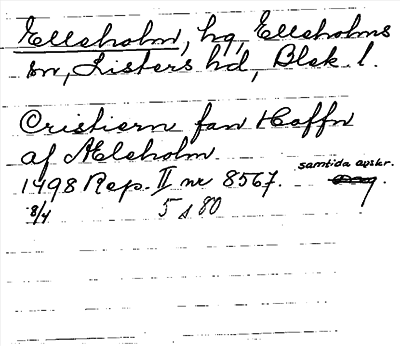 Elleholm, hg, Elleholms
sn, Listers hd, Blek. l.
Cristiern fan Hoffn
af Æleholm
samtida avskr.
1498 Rep. II nr 8567.
8/4 5 s 80